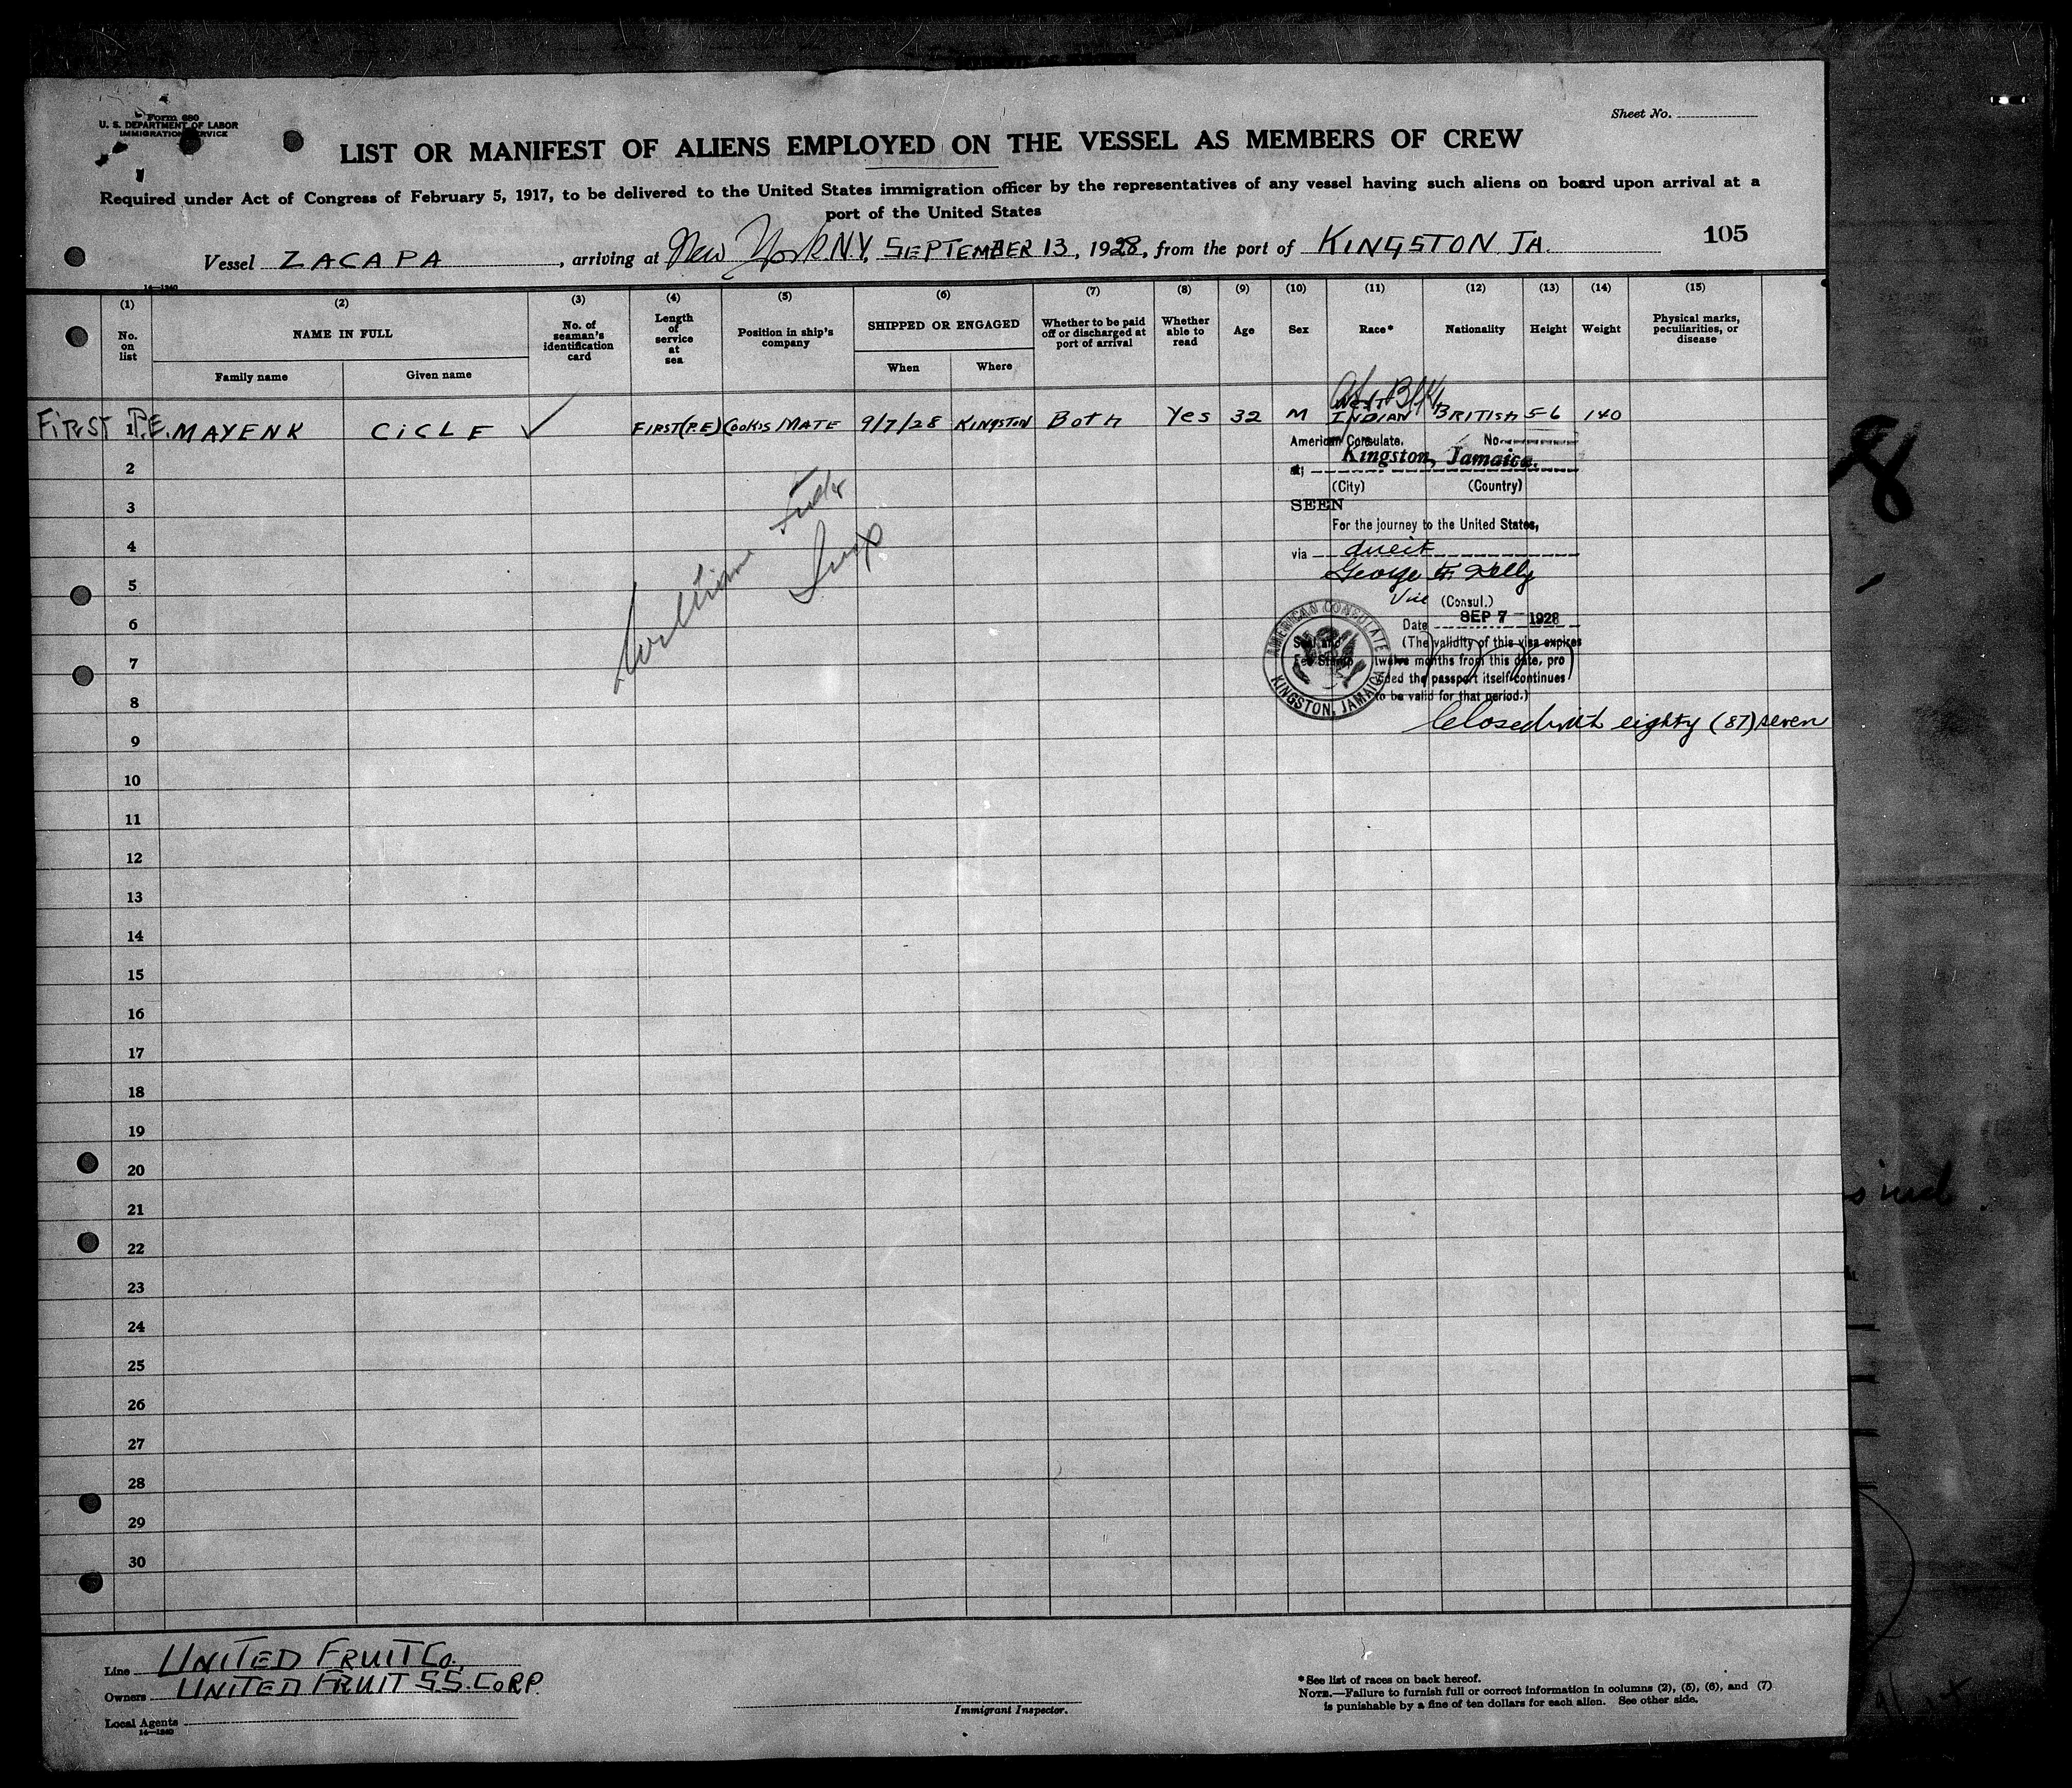 Form 680
U. S. DEPARTMENT OF LABOR
IMMIGRATION SERVICE
Sheet No.
LIST OR MANIFEST OF ALIENS EMPLOYED ON THE VESSEL AS MEMBERS OF CREW
Required under Act of Congress of February 5, 1917, to be delivered to the United States immigration officer by the representatives of any vessel having such aliens on board upon arrival at a
port of the United States
105
Vessel ZACAPA, arriving at New York N.Y., SEPTEMBER 13, 1928, from the port of KINGSTON. JA.
14—1240
(1) (2) (3) (4) (5) (6) (7) (8) (9) (10) (11) (12) (13) (14) (15)
No. on list
NAME IN FULL
Family name
Given name
No. of seaman's identification card
Length of service at sea
Position in ship's company
SHIPPED OR ENGAGED
When
Where
Whether to be paid off or discharged at port of arrival
Whether able to read
Age
Sex
Race*
Nationality
Height
Weight
Physical marks, peculiarities, or disease
FIRST P.E. 1 MAYENK CiCLE ✓ FIRST (P.E) COOKS MATE 9/7/28 KINGSTON Both Yes 32 M WEST INDIAN BRITISH 5-6 140
American Consulate. No.
Kingston, Jamaica.
(City) (Country)
SEEN
For the journey to the United States,
via direct
George F. Kelly
Vice (Consul.)
Date SEP 7 1928
(The validity of this visa expires
twelve months from this date, pro
ided the passport itself continues
to be valid for that period.)
AMERICAN CONSULATE
KINGSTON, JAMAICA
Closed with eighty (87) seven
2
3
4
5
6
7
8
9
10
11
12
13
14
15
16
17
18
19
20
21
22
23
24
25
26
27
28
29
30
Line UNITED FRUIT Co.
Owners UNITED FRUIT S.S. CORP.
Local Agents
14—1240
Immigrant Inspector.
*See list of races on back hereof.
NOTE.—Failure to furnish full or correct information in columns (2), (5), (6), and (7)
is punishable by a fine of ten dollars for each alien. See other side.